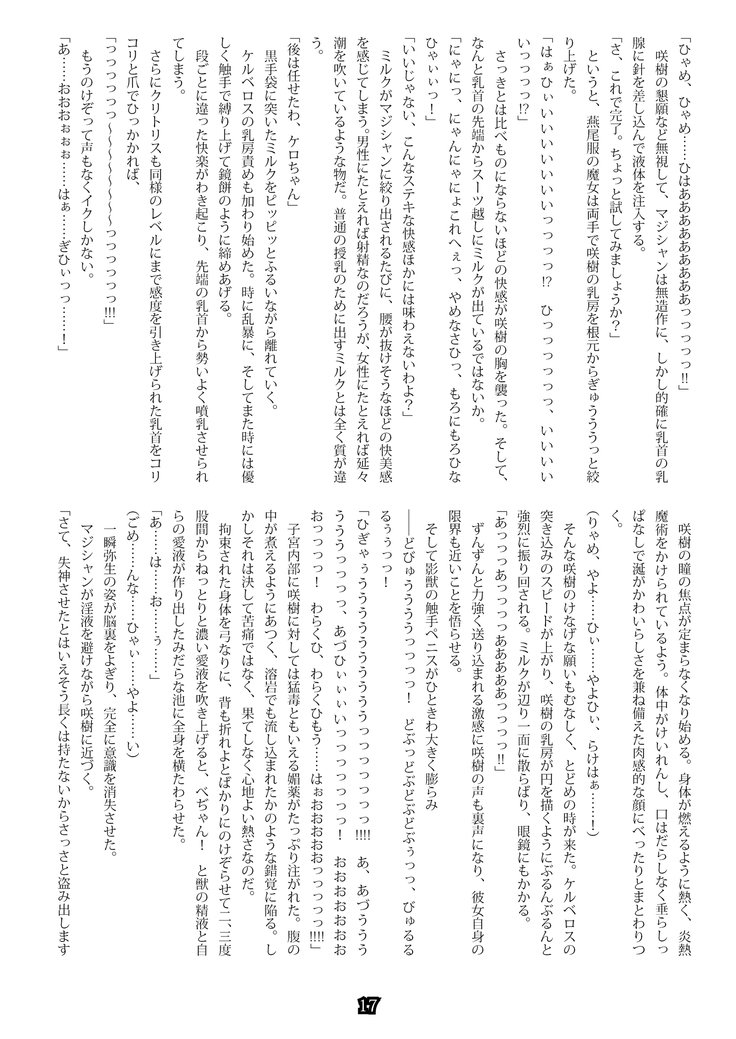 「ひゃめ、ひゃめ……ひはああああああああっっっっっ!!
　咲樹の懇願など無視して、マジシャンは無造作に、しかし的確に乳首の乳
腺に針を差し込んで液体を注入する。
「さ、これで完了。ちょっと試してみましょうか？」
　というと、燕尾服の魔女は両手で咲樹の乳房を根元からぎゅうううっと絞
り上げた。
「はぁひぃいいいいいいいっっっっ!?　ひっっっっっっ、いいいい
いっっっっ!?」
　さっきとは比べものにならないほどの快感が咲樹の胸を襲った。そして、
なんと乳首の先端からスーツ越しにミルクが出ているではないか。
「にゃにっ、にゃんにゃにょこれへぇっ、やめなさひっ、もろにもろひな
ひゃぃぃっ！」
「いいじゃない、こんなステキな快感ほかには味わえないわよ？」
　ミルクがマジシャンに絞り出されるたびに、腰が抜けそうなほどの快美感
を感じてしまう。男性にたとえれば射精なのだろうが、女性にたとえれば延々
潮を吹いているような物だ。普通の授乳のために出すミルクとは全く質が違
う。
「後は任せたわ、ケロちゃん」
　黒手袋に突いたミルクをピッピッとふるいながら離れていく。
　ケルベロスの乳房責めも加わり始めた。時に乱暴に、そしてまた時には優
しく触手で縛り上げて鏡餅のように締めあげる。
　段ごとに違った快楽がわき起こり、先端の乳首から勢いよく噴乳させられ
てしまう。
　さらにクリトリスも同様のレベルにまで感度を引き上げられた乳首をコリ
コリと爪でひっかかれば、
「っっっっっっ～～～～～～～～っっっっっっ!!!」
　もうのけぞって声もなくイクしかない。
「あ……おおおぉぉぉ……はぁ……ぎひぃっっ……！」
　咲樹の瞳の焦点が定まらなくなり始める。身体が燃えるように熱く、炎熱
魔術をかけられているよう。体中がけいれんし、口はだらしなく垂らしっ
ぱなしで涎がかわいらしさを兼ね備えた肉感的な顔にべったりとまとわりつ
く。
（りゃめ、やよ……ひぃ……やよひぃ、らけはぁ……！）
　そんな咲樹のけなげな願いもむなしく、とどめの時が来た。ケルベロスの
突き込みのスピードが上がり、咲樹の乳房が円を描くようにぶるんぶるんと
強烈に振り回される。ミルクが辺り一面に散らばり、眼鏡にもかかる。
「あっっっあっっっっああああああっっっっ!!
　ずんずんと力強く送り込まれる激感に咲樹の声も裏声になり、彼女自身の
限界も近いことを悟らせる。
　そして影獣の触手ペニスがひときわ大きく膨らみ
――どびゅうううううっっっっ！　どぶっどぶどぶどぶぅっっ、びゅるる
るぅぅっっ！
「ひぎゃぅううううううううううっっっっっっっ!!!!　あ、あづううう
うううっっっっ、あづひぃぃぃいっっっっっっっ！　おおおおおおお
おっっっっ！　わらくひ、わらくひもう……はぉおおおおおっっっっっ!!!!」
　子宮内部に咲樹に対しては猛毒ともいえる媚薬がたっぷり注がれた。腹の
中が煮えるようにあつく、溶岩でも流し込まれたかのような錯覚に陥る。し
かしそれは決して苦痛ではなく、果てしなく心地よい熱さなのだ。
　拘束された身体を弓なりに、背も折れよとばかりにのけぞらせて二、三度
股間からねっとりと濃い愛液を吹き上げると、べぢゃん！　と獣の精液と自
らの愛液が作り出したみだらな池に全身を横たわらせた。
「あ……は……お……ぅ……」
（ごめ……んな……ひゃぃ……やよ……い）
　一瞬弥生の姿が脳裏をよぎり、完全に意識を消失させた。
　マジシャンが淫液を避けながら咲樹に近づく。
「さて、失神させたとはいえそう長くは持たないからさっさと盗み出します
17